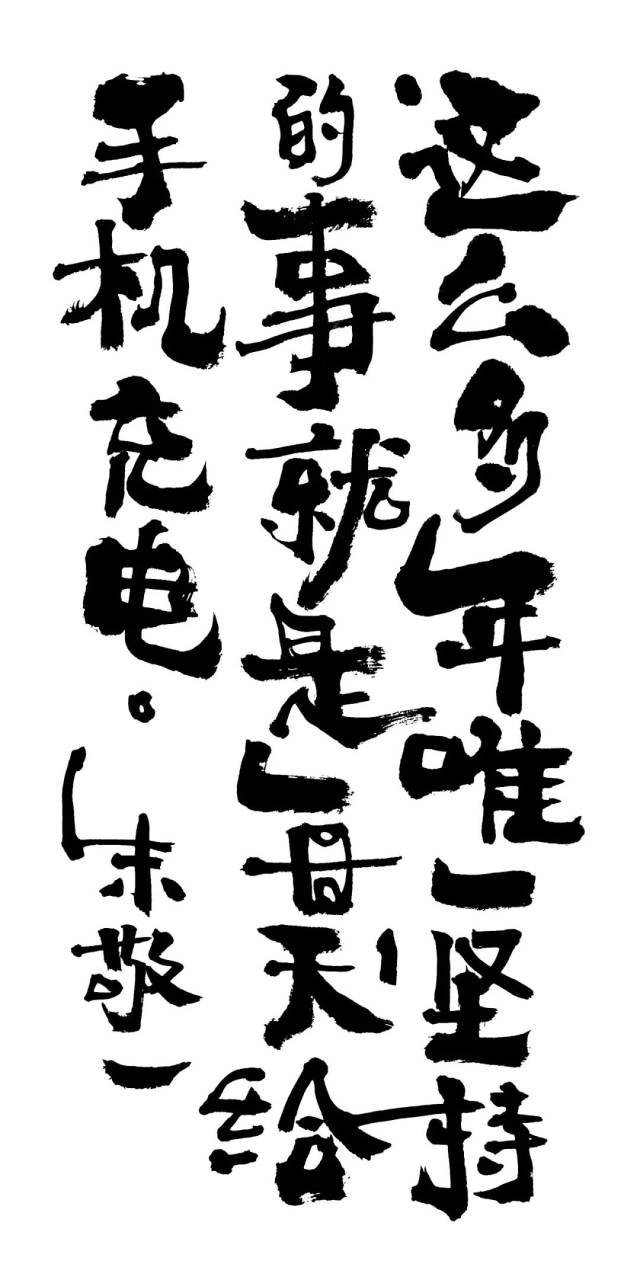 这么多年唯一坚持
的事就是每天给
手机充电。朱敬一